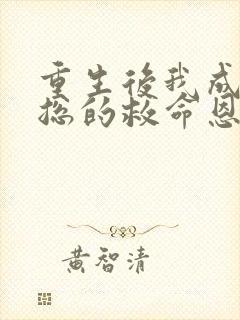 重生後我成
總的救命恩
黃智清